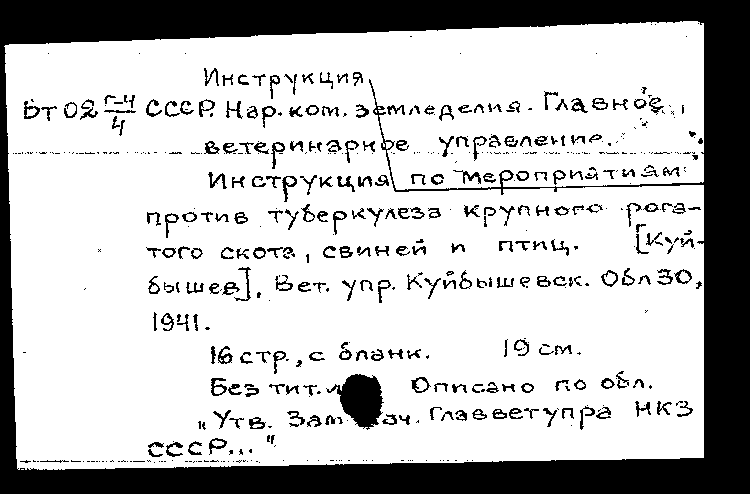 Инструкция
Вт 02 Г-4/4 СССР. Нар. ком. земледелия. Главное
ветеринарное управление.
Инструкция по мероприятиям
против туберкулеза крупного рога-
того скота, свиней и птиц. [Куй-
бышев], Вет. упр. Куйбышевск. ОблЗО,
1941.
16 стр., с бланк. 19 см.
Без тит. Описано по обл.
„Утв. Зам. нач. Главветупра НКЗ
СССР..."